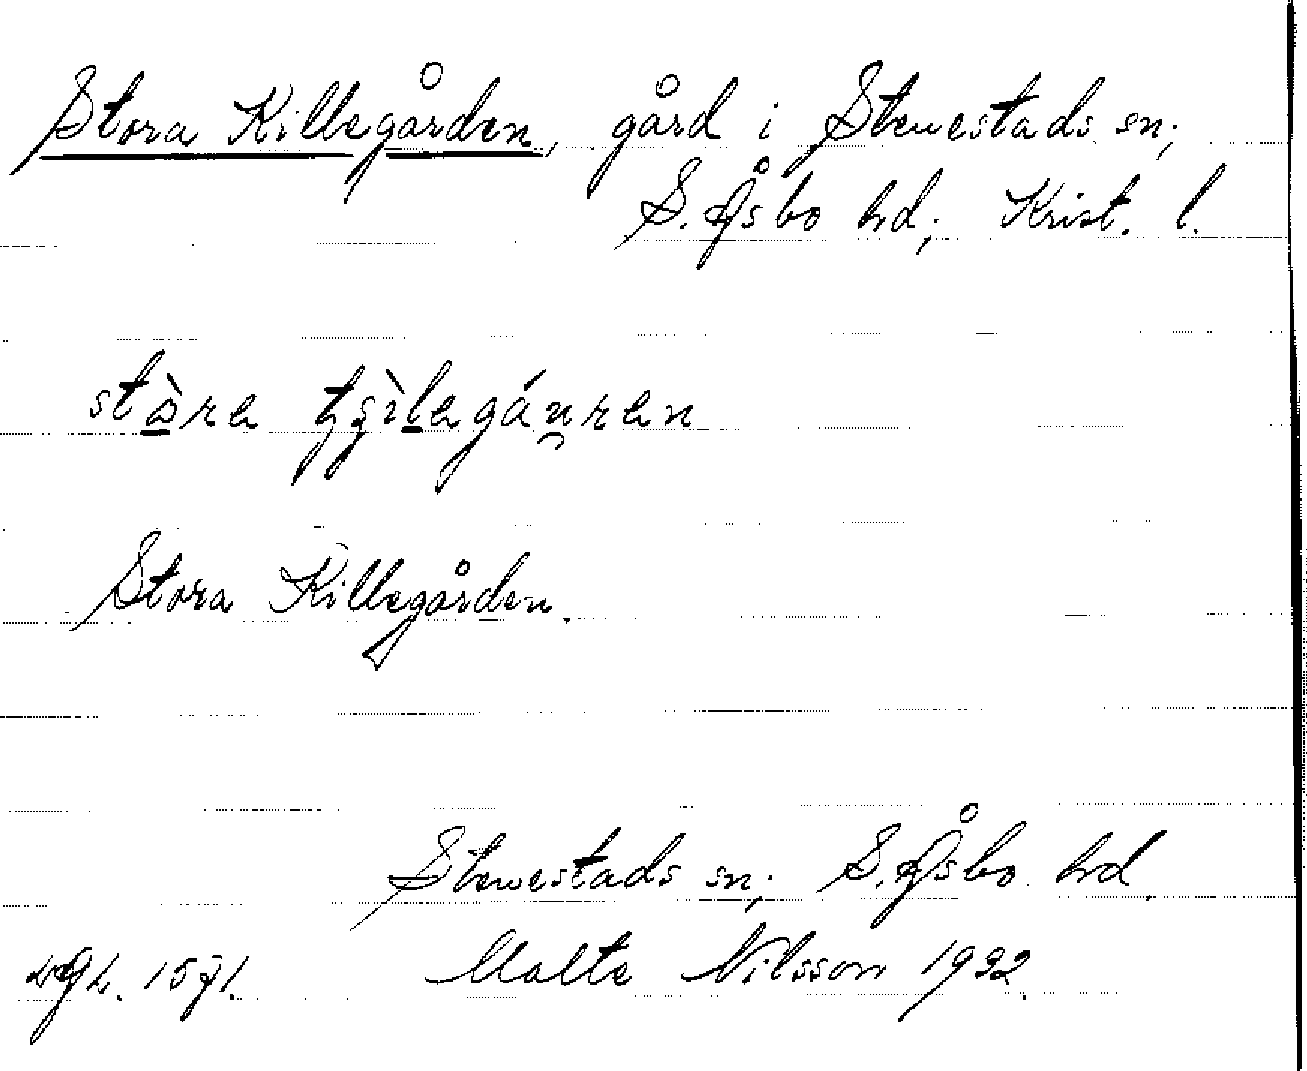 Stora Killegården, gård i Stenestads sn;
S. Åsbo hd; Krist. l.
Stora Killegården.
Stenestads sn; S. Åsbo hd
Malte Nilsson 1932.